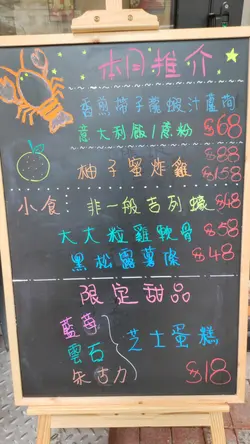 本月推介
香煎帶子龍蝦汁蘆筍
意大利飯/扁粉 $68
$88
柚子蜜炸雞 $158
小食: 非一般吉列蠔 $48
大大粒雞軟骨 $58
黑松露薯條 $48
限定甜品
藍莓
雲石 芝士蛋糕
朱古力 $18